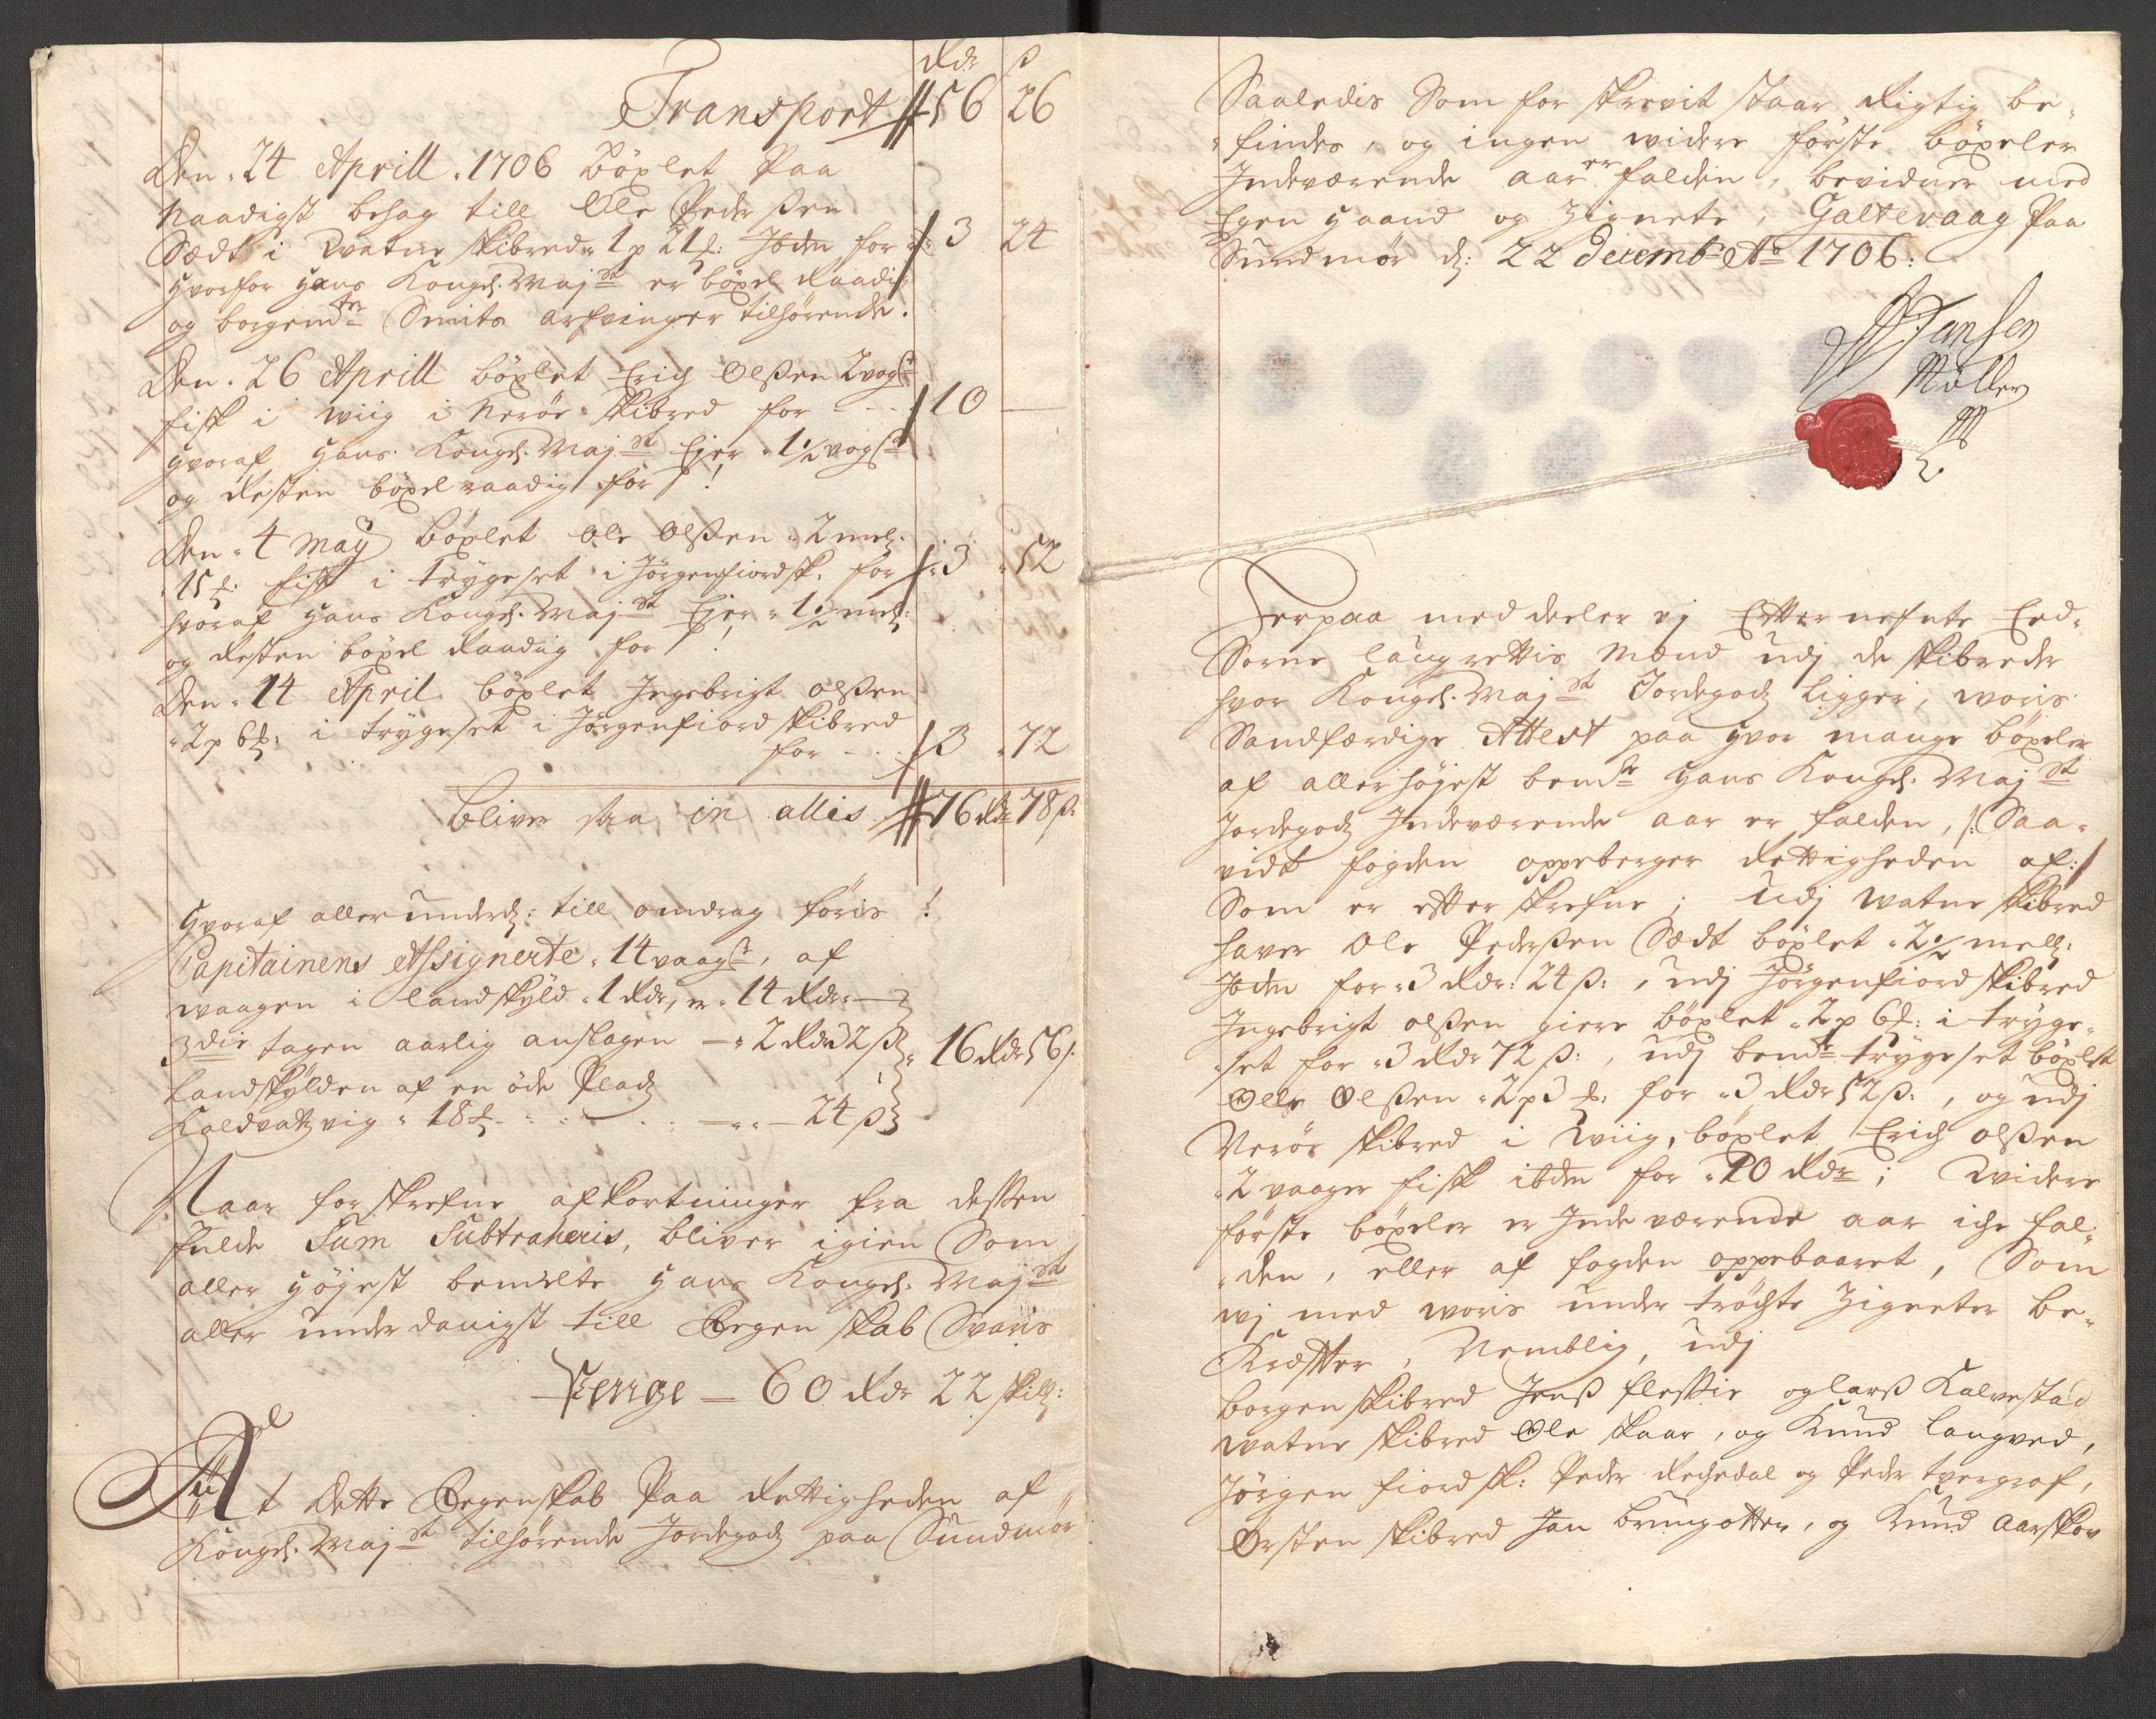 Rdr ß
Transport 56 26
Den 24 Aprill 1706 böxlet Paa
Naadigst behag till Ole Pederßen
Sædt i Watne skibred 1 p 21 ℔: Jbdm for 3 24
hvorfor hans Kongel. Majst er böxel Raadig
og borgemstr Smits arfvinger tilhörende.
Den 26 Aprill böxlet Erich Olßen 2 vogr
fisk i wiig i Nerör skibred for - - - 10 —
hvoraf hans Kongel. Majst Ejer 1½ vogr
og Resten böxel raadig for!
Den 4 May böxlet Ole Olßen 2 mel:
15 ℔: fisk i trygeset i Jörgenfiord sk: for 3 52
hvoraf hans Kongel. Majst Ejer 1½ mel:
og Resten böxel Raadig for!
Den 14 April böxlet Ingebrigt Olßen
2 p 6 ℔: i trygeset i Jörgenfiord skibred
for - - - 3 72
bliver saa in alles 76 Rdr 78 ß:
hvoraf allerunderd: till omdrag föris!
Capitainens Assignerte 14 vaagr, af
waagen i landskyld 1 Rdr, er 14 Rdr
3die tagen aarlig anslagen — 2 Rdr 32 ß 16 Rdr 56 ß.
Landskylden af en öde Pladz
Koldvatzvig 18 ℔ - - - — 24 ß
Naar forskrefne afkortninger fra dessen
fulde Sum Subtraheris, bliver igien Som
aller höjest bemelte hans Kongel. Majst
aller underdanigst till Regenskab Svaris
Penge — 60 Rdr 22 skill:
At Dette Regenskab Paa Rettigheden af
Kongel. Majst tilhörende Jordegodz paa Sundmör
Saaledis Som for skrevit staar Rigtig be-
findes, og ingen widere förste böxeler
Indeværende aar er falden, bevidner med
Egen haand og Zignete, Galtevaag Paa
Sundmör d: 22 Decembr Ao 1706:
Jansen
Möller
Herpaa meddeeler vj Efter nefnte Eed-
Sorne laugrettis Mænd udj de skibreder
hvor Kongel. Majst Jordegodz ligger, woris
Sandfærdige Attest paa hvor mange böxeler
af allerhöjest bemte hans Kongel. Majst
Jordegodz Indeværende aar er falden, /: Saa-
vidt fogden oppeberger Rettigheden af :/
Som er efterskrefne; udj Watne skibred
haver Ole Pederßen Sædt böxlet 2½ mell:
Jbdm for 3 Rdr: 24 ß:, udj Jörgenfiord skibred
Ingebrigt Olßen giere böxlet 2 p 6 ℔: i tryge-
set for 3 Rdr 72 ß:, udj bemte trygeset böxlet
Olle Olßen 2 p 3 ℔: for 3 Rdr 52 ß:, og udj
Nerör skibred i wiig, böxlet Erich Olßen
2 vaager fisk ibdm for 10 Rdr; widere
förste böxeler er Indeværende aar iche fal-
den, eller af fogden oppebaaret, Som
wj med woris under tröchte Zigneter be-
Kræffter, Nemblig, udj
borgen skibred Jenß flessie og larß Kalvestad
watne skibred Ole skaar, og Knud langved,
Jörgen fiord sk: Peder Rechedal og Peder tvergrof,
Örsten skibred Jan brungotten, og Knud Aarskov